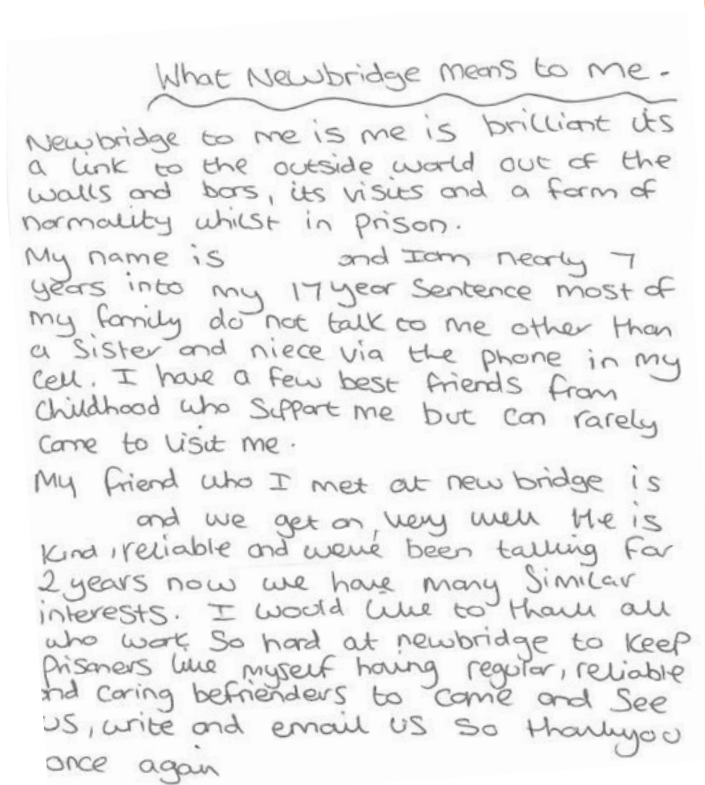 What Newbridge means to me.
Newbridge to me is me is brilliant its
a link to the outside world out of the
walls and bars, its visits and a form of
normality whilst in prison.
My name is and I am nearly 7
years into my 17 year sentence most of
my family do not talk to me other than
a sister and niece via the phone in my
cell. I have a few best friends from
childhood who support me but can rarely
come to visit me.
My friend who I met at new bridge is
and we get on, very well He is
kind, reliable and weve been talking for
2 years now we have many similar
interests. I would like to thank all
who work so hard at newbridge to keep
prisoners like myself having regular, reliable
and caring befrienders to come and see
us, write and email us so thankyou
once again